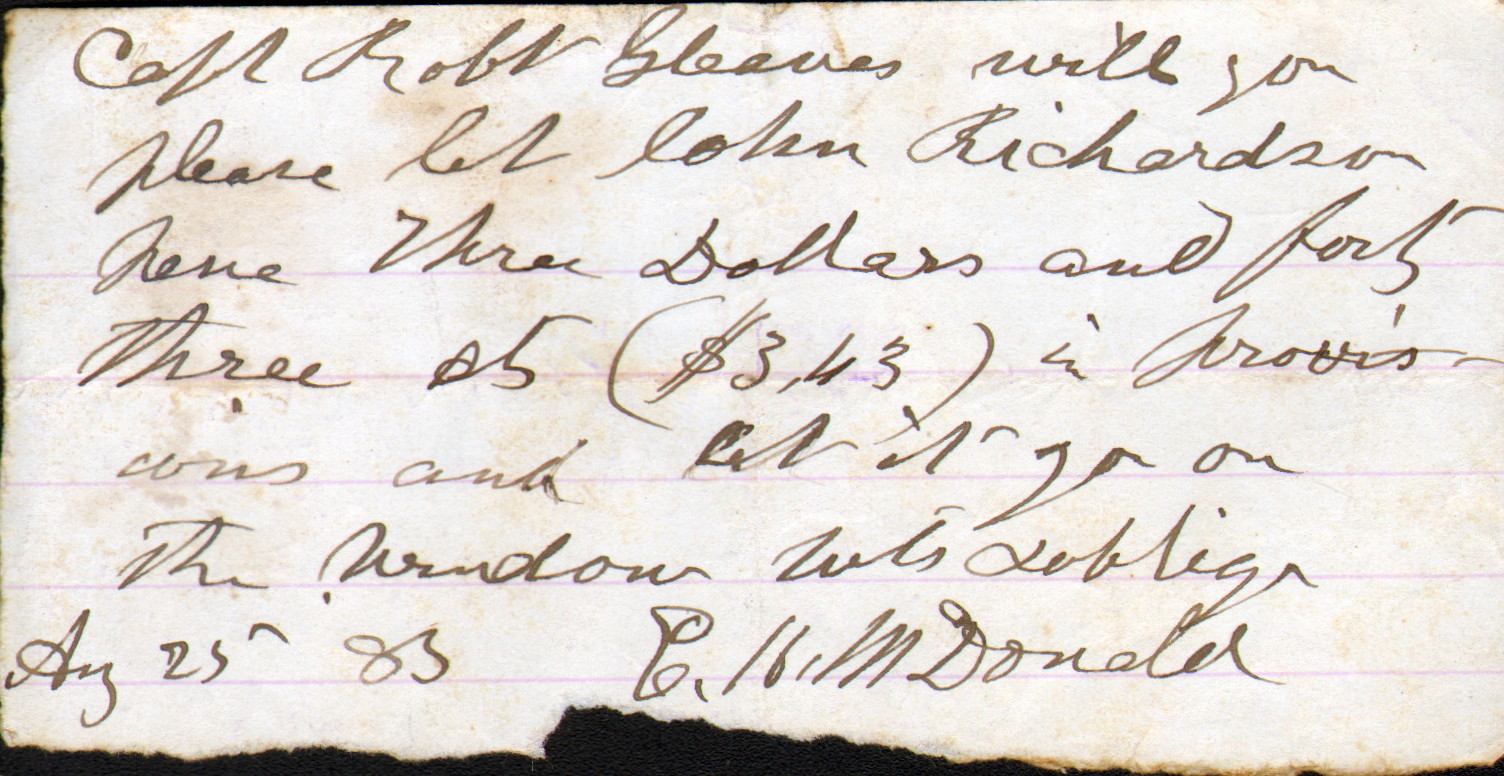 Capt Robt Gleaves will you
please let John Richardson
have Three Dollars and forty
three cts ($3,43) in provis-
ions and let it go on
the window &oblige
Aug 25 83 E. H. McDonald